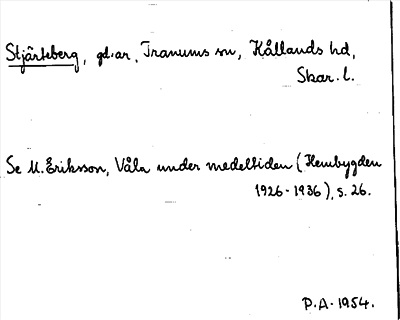 Stjärteberg, gd. ar, Tranums sn, Kållands hd,
Skar. l.
Se M. Eriksson, Våla under medeltiden (Hembygden
1926-1936), s. 26.
P.A. 1954.